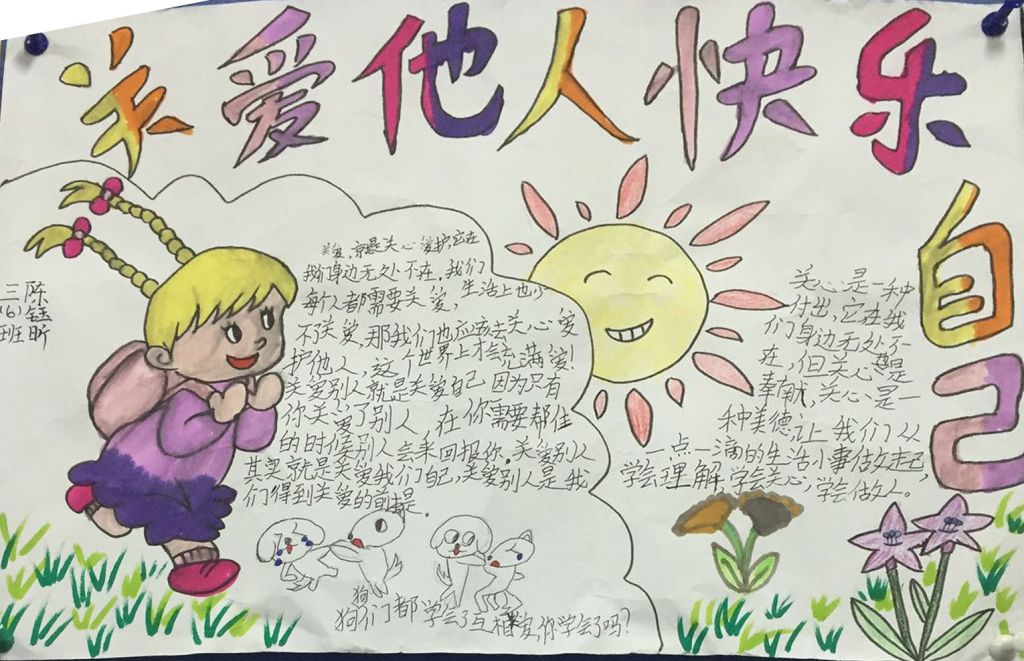 关爱他人快乐
自己
三(6)班
陈钰昕
关爱,就是关心爱护,它在
我们身边无处不在。我们
每个人都需要关爱,生活上也少
不了关爱,那我们也应该去关心爱
护他人,这个世界上才会充满爱!
关爱别人就是关爱自己,因为只有
你关爱了别人,在你需要帮住
的时候别人会来回报你,关爱别人
其实就是关爱我们自己,关爱别人是我
们得到关爱的前提。
狗
狗们都学会了互相爱,你学会了吗?
关心是一种
付出,它在我
们身边无处不
在,但关心是
奉献,关心是一
种美德,让我们从
一点一滴的生活小事做起,
学会理解,学会关心,学会做人。